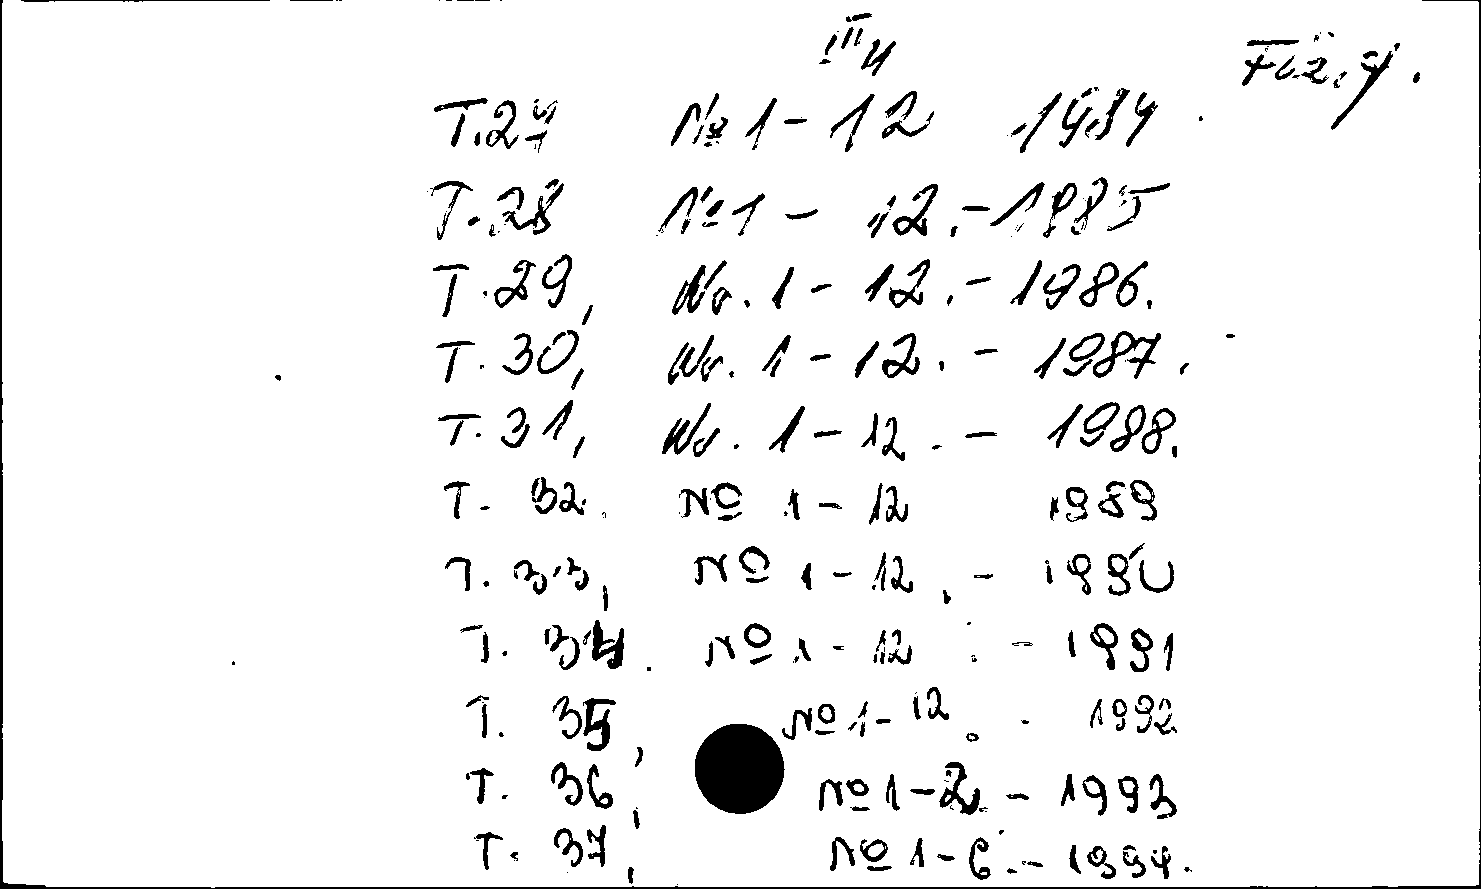 III 4
Fiz. 7.
T.27 № 1 - 12 1984
T.28 № 1 - 12. - 1985
T.29, Nr. 1 - 12. - 1986.
T.30, Nr. 1 - 12. - 1987.
T.31, Nr. 1 - 12. - 1988.
T. 32. № 1 - 12 1989
T. 33, № 1 - 12. - 1990
T. 34. № 1 - 12. - 1991
T. 35, № 1 - 12. - 1992
T. 36, № 1 - 2. - 1993
T. 37, № 1 - 6. - 1994.